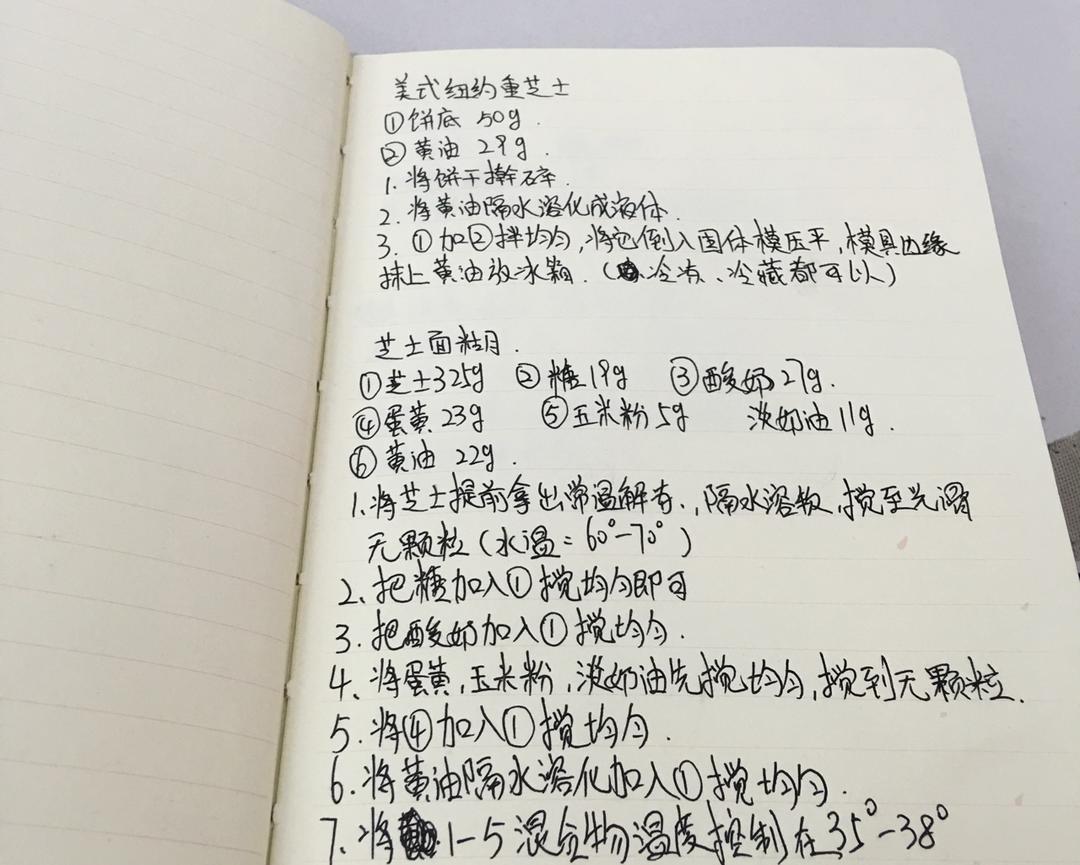 美式纽约重芝士
①饼底 50g.
②黄油 29g.
1. 将饼干擀碎.
2. 将黄油隔水溶化成液体.
3. ①加②拌均匀,将它倒入固体模压平,模具边缘
抹上黄油放冰箱.(冷冻、冷藏都可以)
芝士面糊.
①芝士325g ②糖19g ③酸奶27g.
④蛋黄23g ⑤玉米粉5g 淡奶油11g.
⑥黄油 22g.
1.将芝士提前拿出常温解冻.,隔水溶散,搅至光滑
无颗粒(水温=60°-70°)
2、把糖加入①搅均匀即可
3.把酸奶加入①搅均匀.
4、将蛋黄,玉米粉,淡奶油先搅均匀,搅到无颗粒.
5.将④加入①搅均匀.
6.将黄油隔水溶化加入①搅均匀.
7.将1-5混合物温度控制在35°-38°